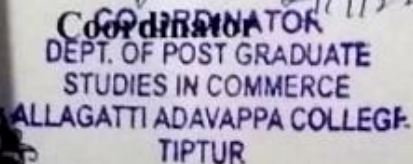 Coordinator
CO-ORDINATOR
DEPT. OF POST GRADUATE
STUDIES IN COMMERCE
ALLAGATTI ADAVAPPA COLLEGE
TIPTUR